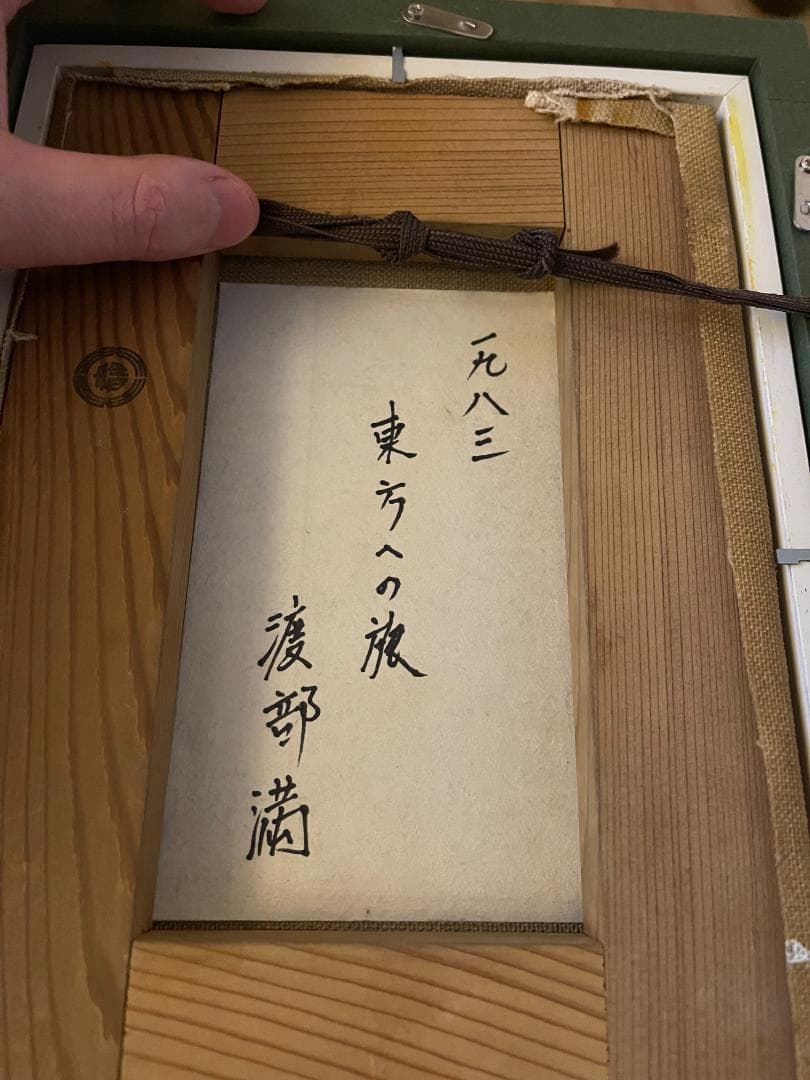 一九八三
東方への旅
渡部満